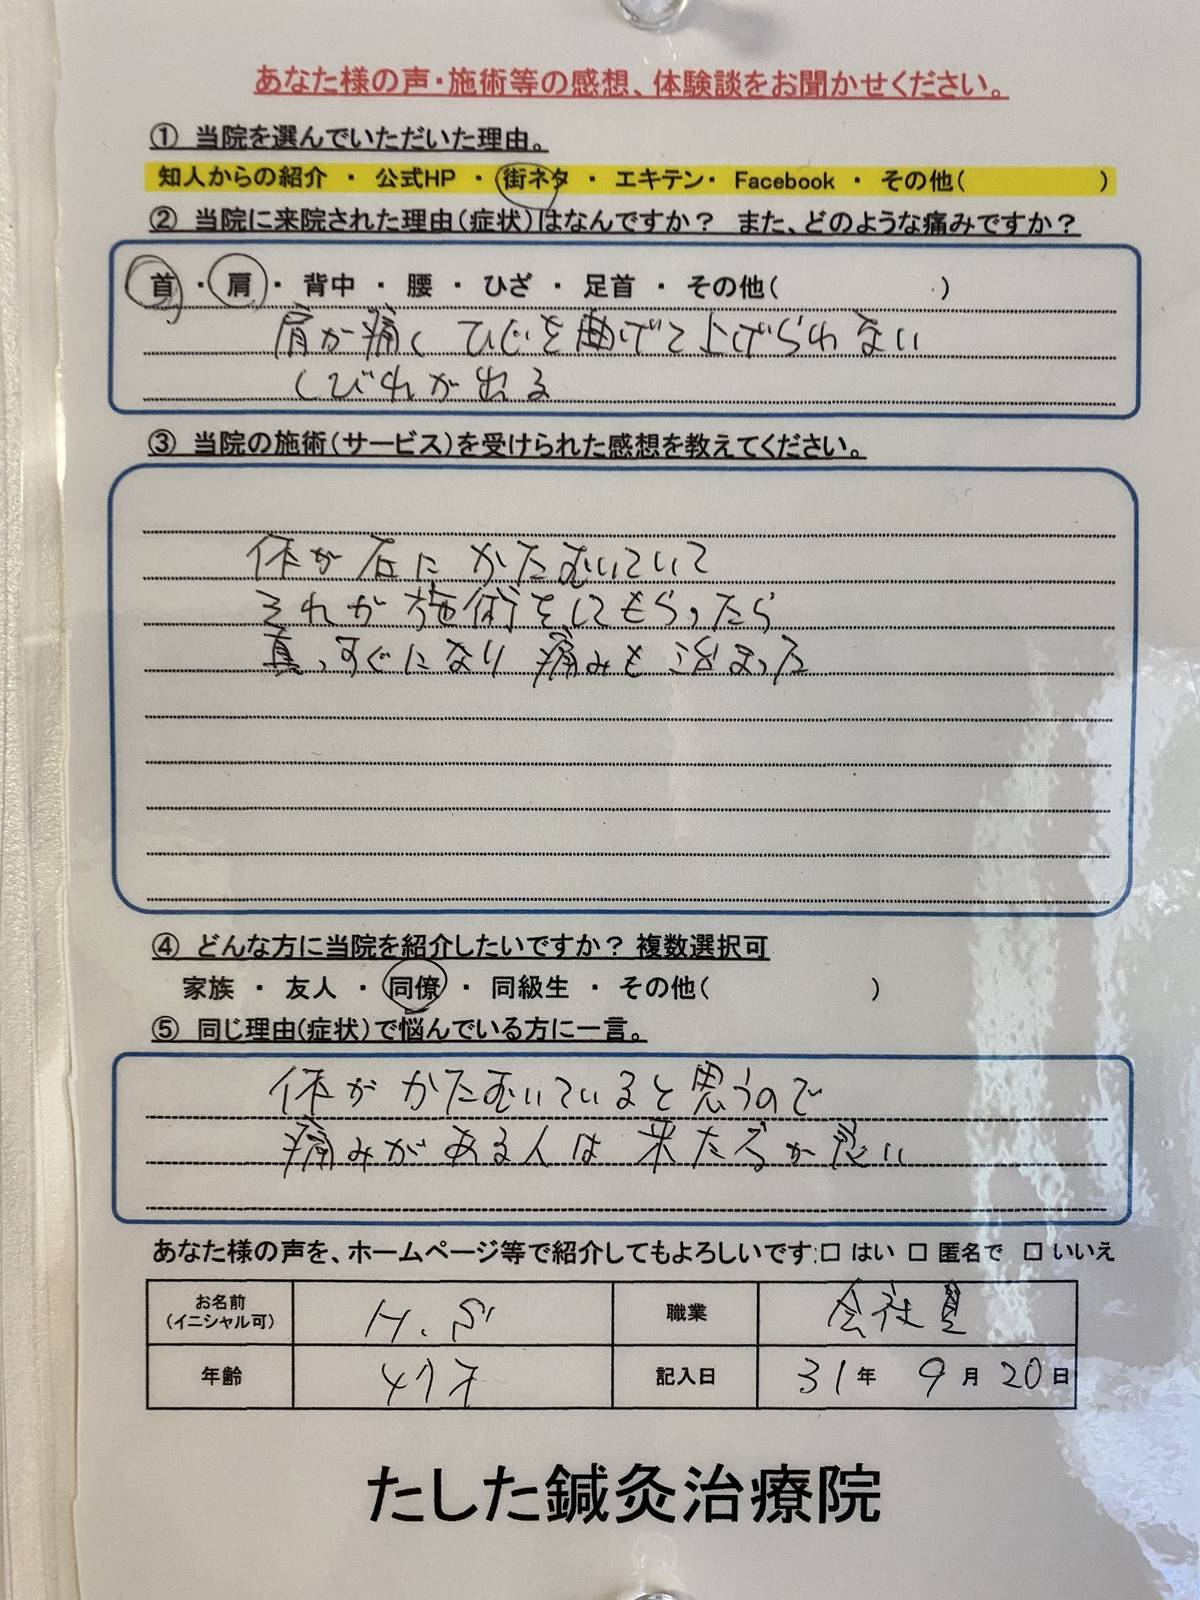 あなた様の声・施術等の感想、体験談をお聞かせください。
① 当院を選んでいただいた理由。
知人からの紹介 ・ 公式HP ・ 街ネタ ・ エキテン・ Facebook ・ その他( )
② 当院に来院された理由(症状)はなんですか? また、どのような痛みですか?
首 ・ 肩 ・ 背中 ・ 腰 ・ ひざ ・ 足首 ・ その他( )
肩が痛く ひじを曲げて上げられない
しびれが出る
③ 当院の施術(サービス)を受けられた感想を教えてください。
体が右に かたむいていて
それが施術をしてもらったら
真っすぐになり 痛みも治まった
④ どんな方に当院を紹介したいですか? 複数選択可
家族 ・ 友人 ・ 同僚 ・ 同級生 ・ その他( )
⑤ 同じ理由(症状)で悩んでいる方に一言。
体が かたむいていると思うので
痛みがある人は 来た方が良い
あなた様の声を、ホームページ等で紹介してもよろしいです:□ はい □ 匿名で □ いいえ
お名前 (イニシャル可) H.S 職業 会社員
年齢 47才 記入日 31年 9月 20日
たした鍼灸治療院